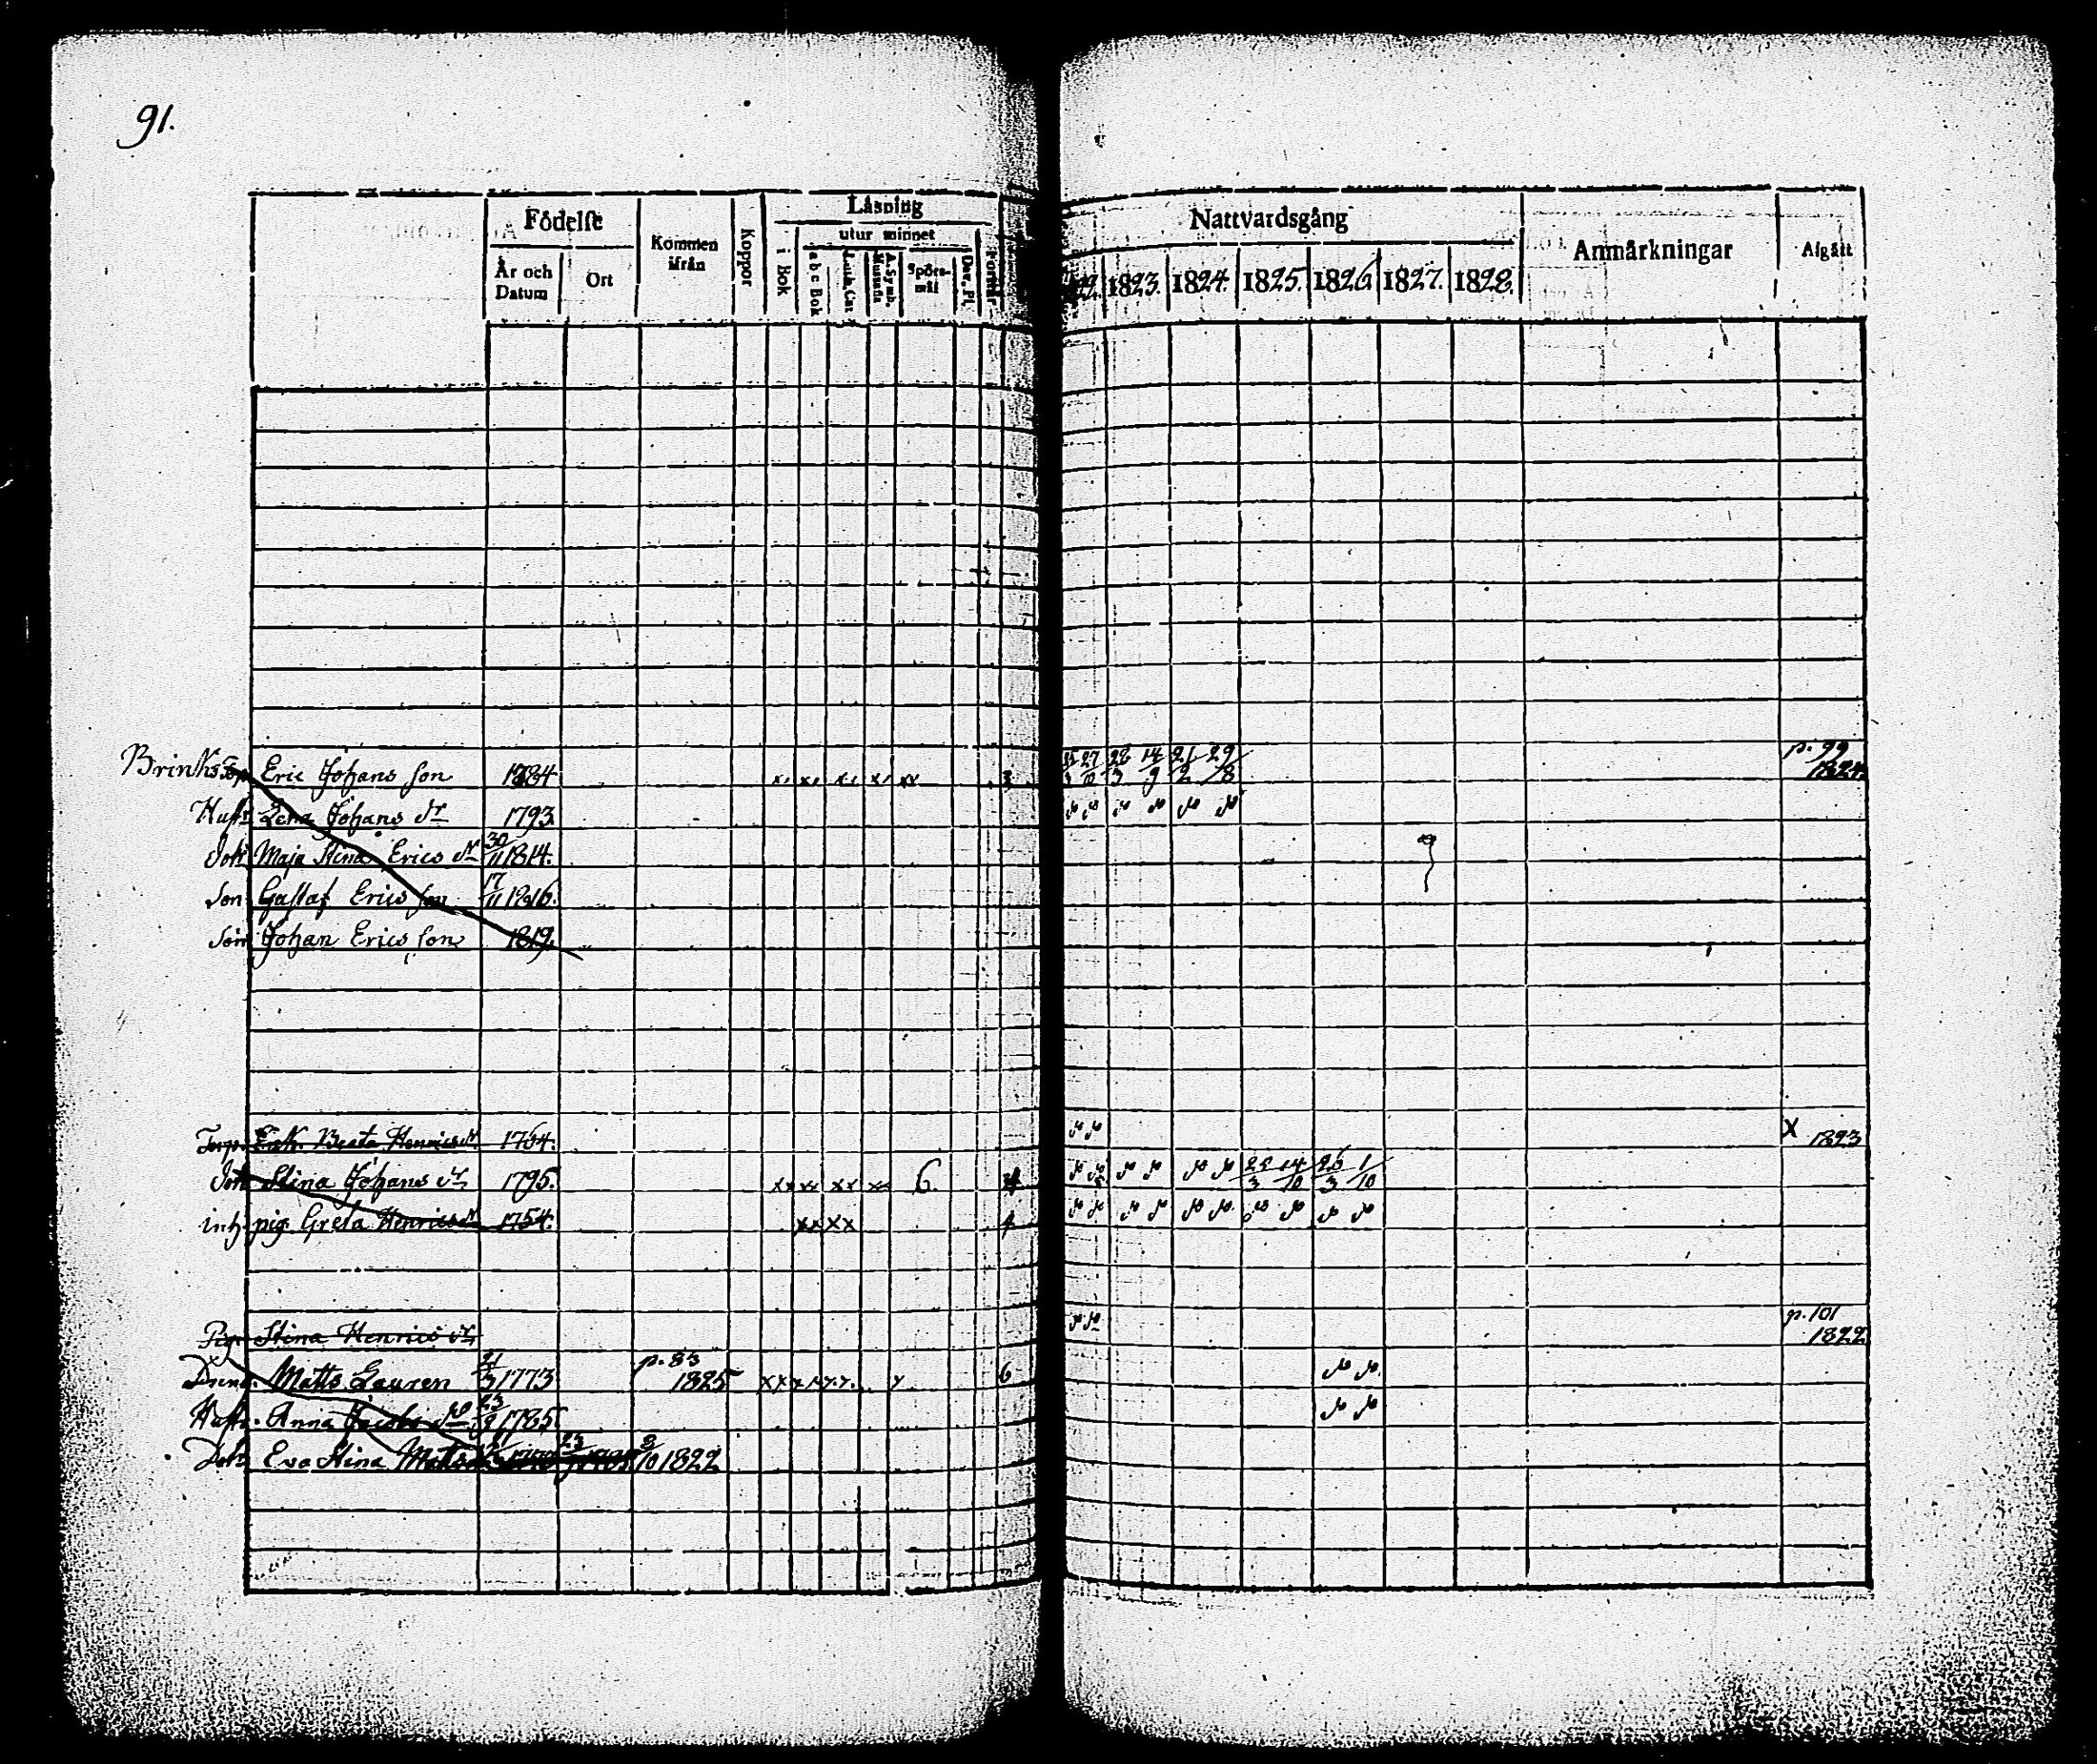 91.
Födelse Kommen ifrån Koppor Låsning Nattvardsgång Anmärkningar Afgått
År och Datum Ort i Bok utur minnet
a b c Bok Luth. Cat A. Symb. Hustafla Spörsmål Dav. Pl. Förstår
1823. 1824. 1825. 1826. 1827. 1828.
Brinks Torp Eric Johans son 1784 3 27/10 14/9 21/2 29/8 p. 99 1824
Hustr. Lena Johans dr 1793
Dotr Maja Stina Erics dr 30/11 1814.
Son Gustaf Erics son 17/11 1816.
Son Johan Erics son 1819.
Torp. Beata Henrics dr 1764. X 1823
Dotr Stina Johans dr 1795. 6. 14/10 26/3 1/10
inh. pig. Greta Henrics dr 1754.
Pig. Stina Henrics dr p. 101 1822
Dreng. Matts Lauren 1773 p. 83 1825 6
Hustr. Anna Jacobs dr 23 1785.
Dotr Eva Stina Matts 8/10 1822